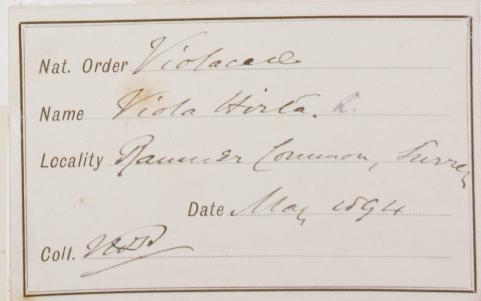 Nat. Order Violaceae
Name Viola Hirta. L.
Locality Common, Surrey
Date May 1894
Coll.